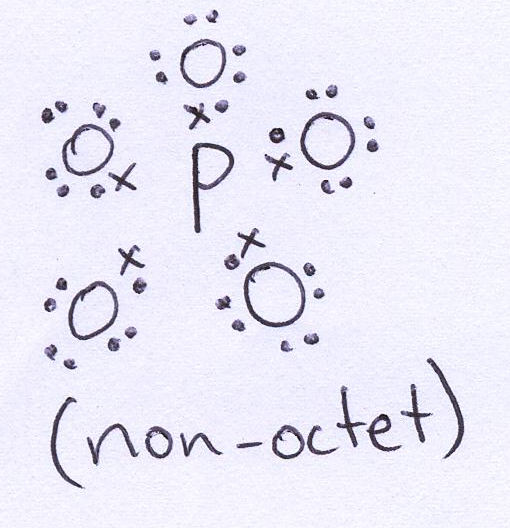 O
O P O
O O
(non-octet)